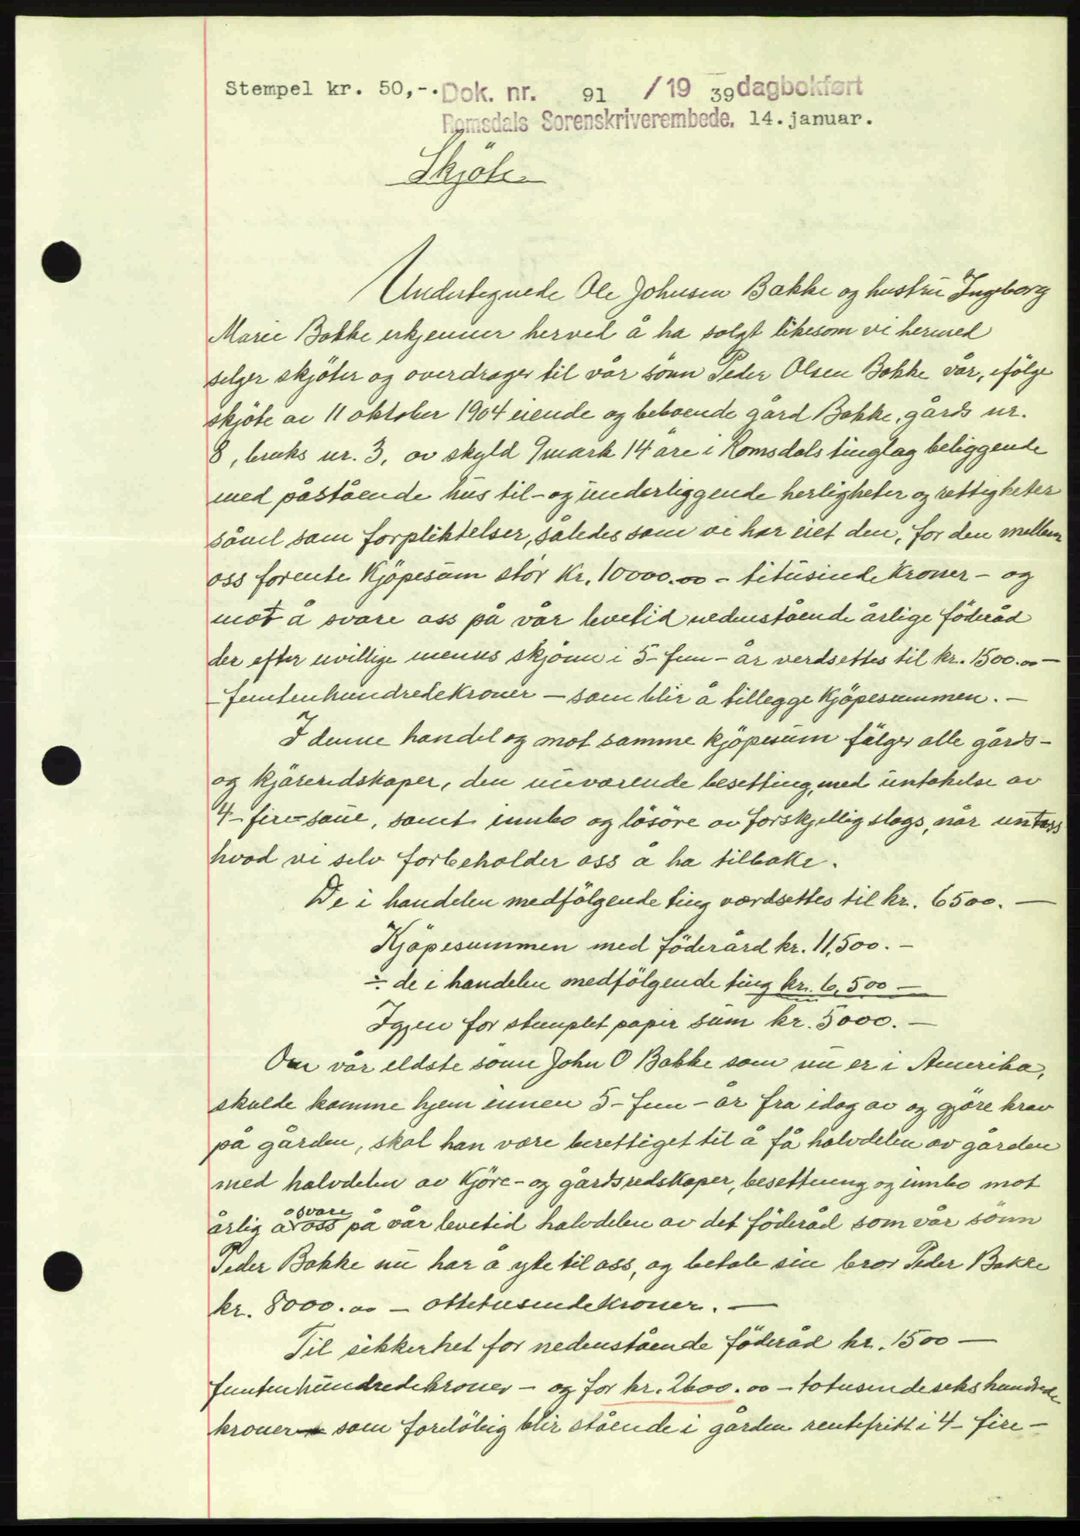 Stempel kr. 50,-. Dok. nr. 91 /19 39 dagbokført
Romsdals Sorenskriverembede. 14. januar.
Skjöte.
Undertegnede Ole Johnsen Bakke og hustru Ingborg
Marie Bakke erkjenner herved å ha solgt likesom vi hermed
selger skjöter og overdrager til vår sönn Peder Olsen Bakke vår, ifölge
skjöte av 11 oktober 1904 eiende og beboende gård Bakke, gårds nr.
8, bruks nr. 3, av skyld 9 mark 14 öre i Romsdals tinglag beliggende
med påstående hus til- og underliggende herligheter og rettigheter
såvel som forpliktelser, således som vi har eiet den, for den mellem
oss forente Kjöpesum stor Kr. 10000.00 - titusinde Kroner - og
mot å svare oss på vår levetid nedenstående årlige föderåd
der efter uvillige menns skjönn i 5 - fem - år verdsettes til kr. 1500.00 -
- femtenhundredekroner - som blir å tillegge Kjöpesummen. -
I denne handel og mot samme kjöpesum fölger alle gårds-
og kjöreredskaper, den nuværende besetting, med untakelse av
4 - fire - saue, samt innbo og lösöre av forskjellig slags, når untass
hvad vi selv forbeholder oss å ha tilbake.
De i handelen medfölgende ting værdsettes til kr. 6500. -
Kjöpesummen med föderård kr. 11,500. -
÷ de i handelen medfölgende ting kr. 6,500 -
Igjen for stemplet papir sum kr. 5000. -
Om vår eldste sönn John O Bakke som nu er i Amerika,
skulde komme hjem innen 5 - fem - år fra idag av og gjöre krav
på gården, skal han være berettiget til å få halvdelen av gården
med halvdelen av Kjöre- og gårdsredskaper, besettning og innbo mot
årlig å svare oss på vår levetid halvdelen av det föderåd som vår sönn
Peder Bakke nu har å yte til oss, og betale sin bror Peder Bakke
kr. 8000.00 - ottetusindekroner. -
Til sikkerhet for nedenstående föderåd kr. 1500 -
femtenhundredekroner - og for kr. 2600.00 - totusindesekshundrede
kroner som forelöbig blir stående i gården rentefritt i 4 - fire -